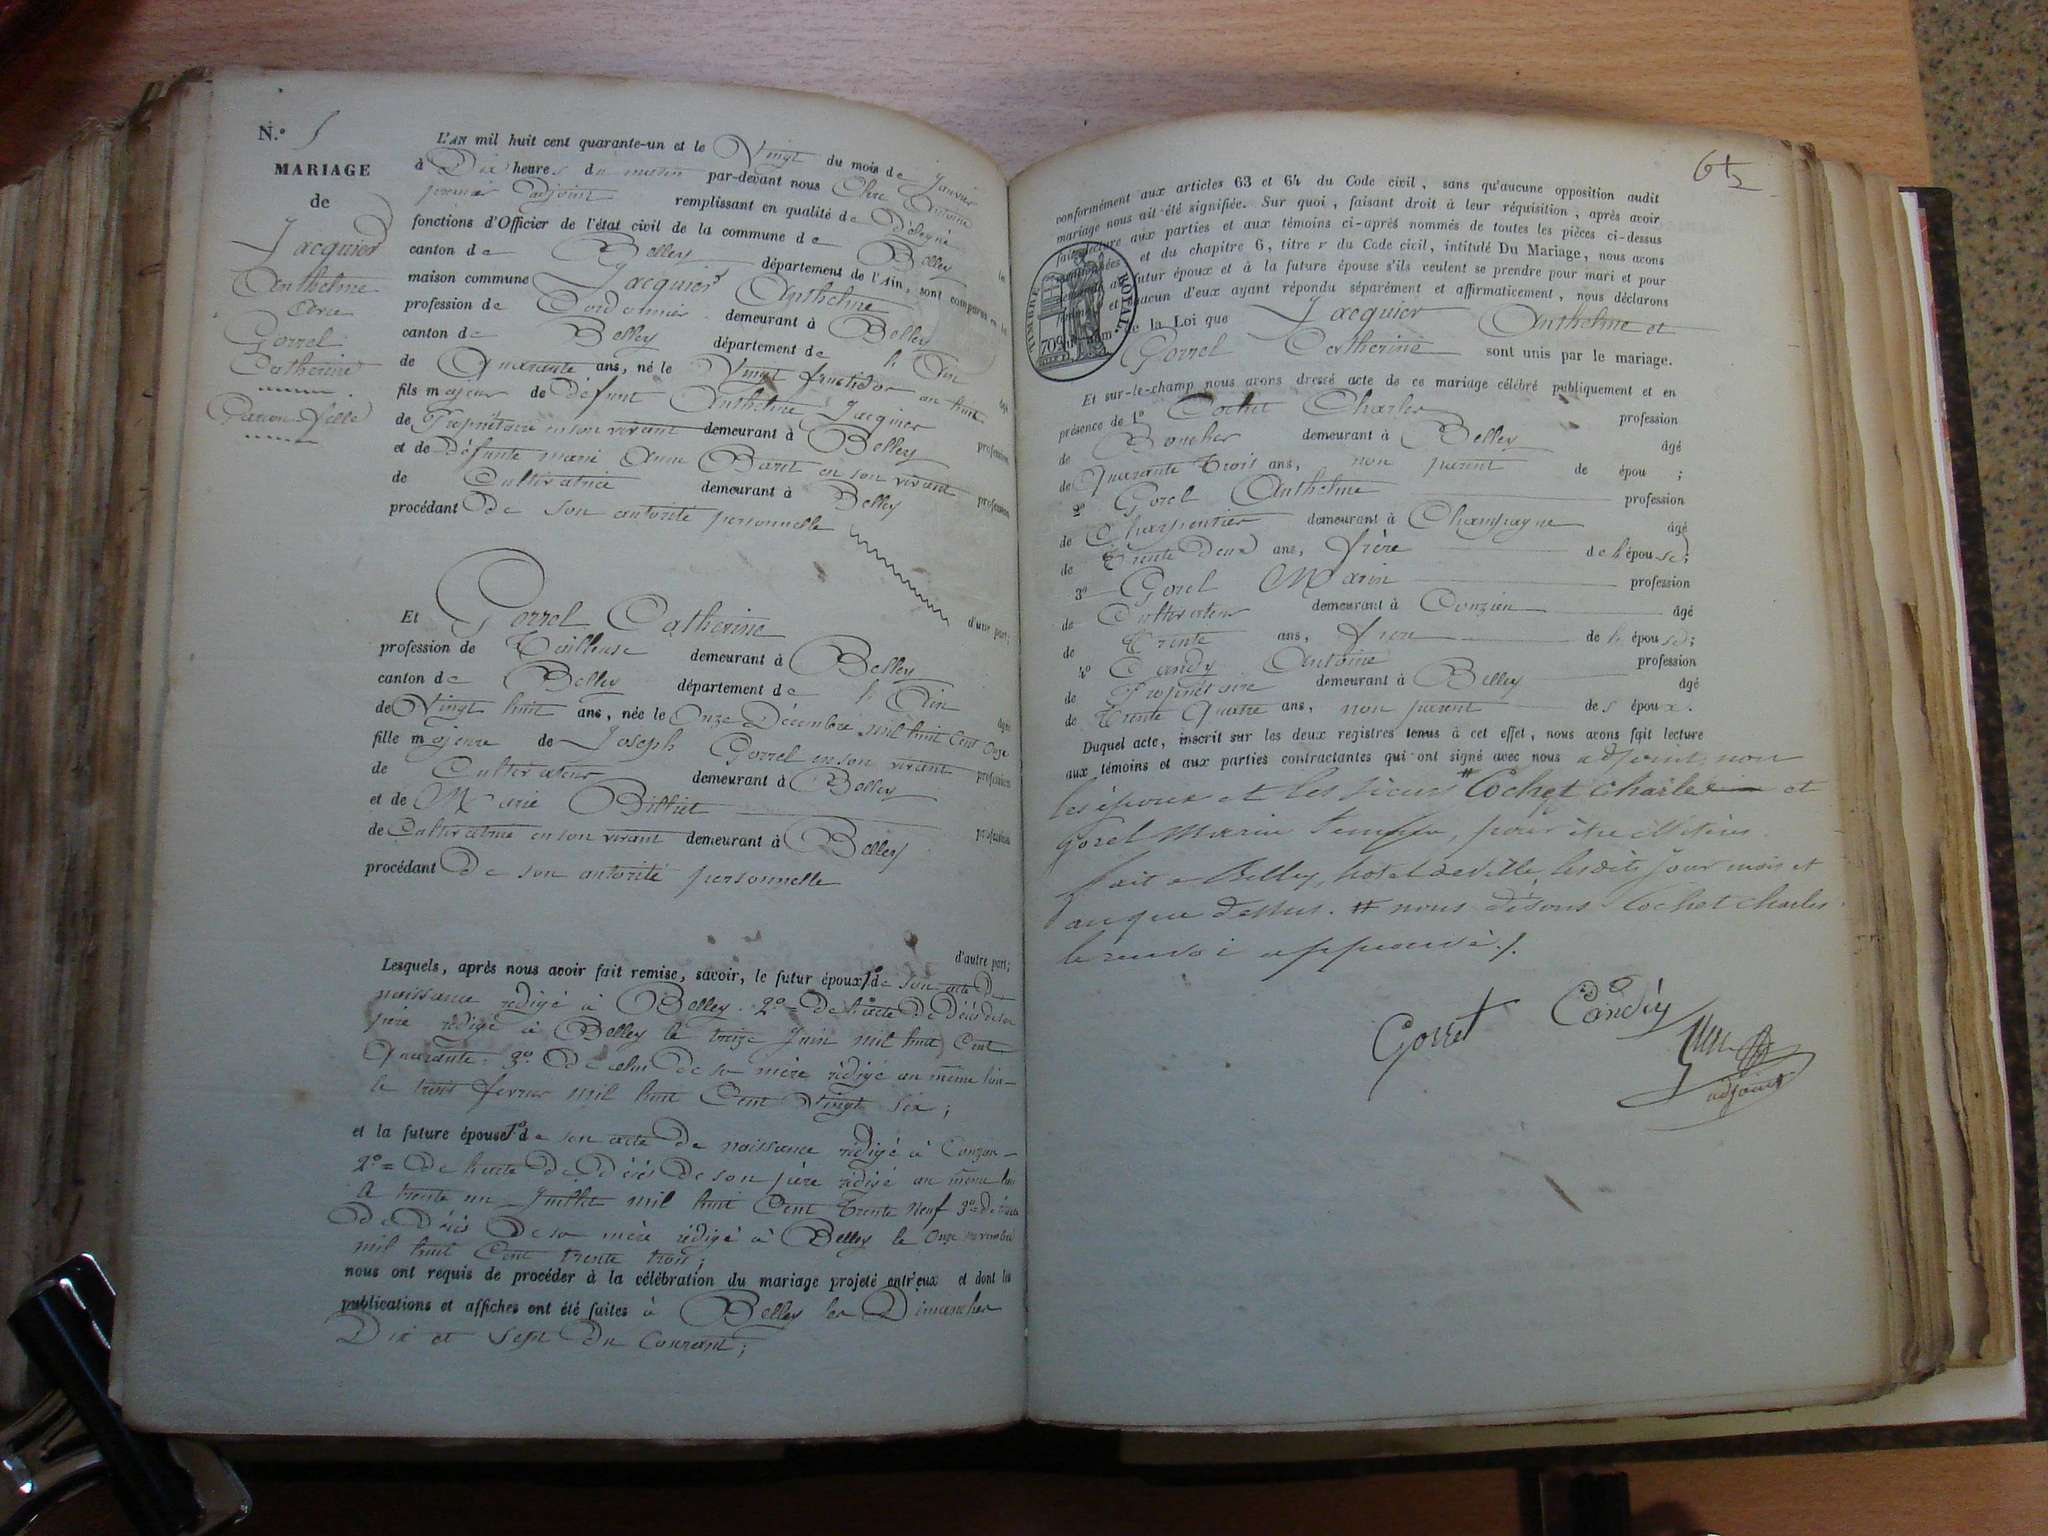 N.° 5
MARIAGE
de
Jacquier
Anthelme
avec
Gorrel
Catherine
Garçon Fille
L'AN mil huit cent quarante-un et le Vingt du mois de Janvier
à Dix heures du matin par-devant nous Antoine
premier adjoint remplissant en qualité de Délégué
fonctions d'Officier de l'état civil de la commune de Belley
canton de Belley département de l'Ain, sont comparus en la
maison commune Jacquier Anthelme
profession de Cordonnier demeurant à Belley
canton de Belley département de l'Ain
de Quarante ans, né le Vingt fructidor an huit âgé
fils majeur de défunt Anthelme Jacquier
de Propriétaire en son vivant demeurant à Belley profession
et de Défunte marie Anne en son vivant
de Cultivatrice demeurant à Belley profession
procédant de son autorité personnelle
d'une part;
Et Gorrel Catherine
profession de Tailleuse demeurant à Belley
canton de Belley département de l'Ain
de Vingt huit ans, née le Onze Décembre mil huit Cent Onze âgée
fille majeure de Joseph Gorrel en son vivant
de Cultivateur demeurant à Belley profession
et de Marie Billiet
de Cultivatrice en son vivant demeurant à Belley profession
procédant de son autorité personnelle
d'autre part;
Lesquels, après nous avoir fait remise, savoir, le futur époux 1° de son acte de
naissance rédigé à Belley. 2° = De l'acte De Décès de son
père rédigé à Belley le treize Juin mil huit Cent
Quarante. 3° De celui De sa mère rédigé au même lieu
le trois fevrier mil huit Cent Vingt six;
et la future épouse 1° de son acte De naissance rédigé à
2° = De l'acte De Décès De son père rédigé au même lieu
le trente un Juillet mil huit Cent Trente Neuf 3° = De l'acte
De Décès De sa mère rédigé à Belley le Onze novembre
mil huit Cent trente trois;
nous ont requis de procéder à la célébration du mariage projeté entr'eux et dont les
publications et affiches ont été faites à Belley les Dimanches
Dix et Sept du Courant;
conformément aux articles 63 et 64 du Code civil, sans qu'aucune opposition audit
mariage nous ait été signifiée. Sur quoi, faisant droit à leur réquisition, après avoir
fait lecture aux parties et aux témoins ci-après nommés de toutes les pièces ci-dessus
mentionnées et du chapitre 6, titre v du Code civil, intitulé Du Mariage, nous avons
demandé au futur époux et à la future épouse s'ils veulent se prendre pour mari et pour
femme et chacun d'eux ayant répondu séparément et affirmativement, nous déclarons
au nom de la Loi que Jacquier Anthelme et
Gorrel Catherine sont unis par le mariage.
TIMBRE ROYAL
Et sur-le-champ nous avons dressé acte de ce mariage célébré publiquement et en
présence de 1° Cochet Charles profession
de Boucher demeurant à Belley âgé
de Quarante trois ans, non parent de épou ;
2° Gorel Anthelme profession
de Charpentier demeurant à Champagne âgé
de Trente Deux ans, frère de l'épouse;
3° Gorel Marin profession
de Cultivateur demeurant à Conzieu âgé
de Trente ans, frère de l'épouse;
4° Candy Antoine profession
de Propriétaire demeurant à Belley âgé
de Trente Quatre ans, non parent des époux.
Duquel acte, inscrit sur les deux registres tenus à cet effet, nous avons fait lecture
aux témoins et aux parties contractantes qui ont signé avec nous adjoint, non
les époux et les sieurs # Cochet Charles et
Gorel Marin témoin, pour être illitérés.
fait à Belley, hotel de ville lesdits jour mois et
an que dessus. # nous disons Cochet charles
le renvoi approuvé ./.
Gorret Candy
adjoint